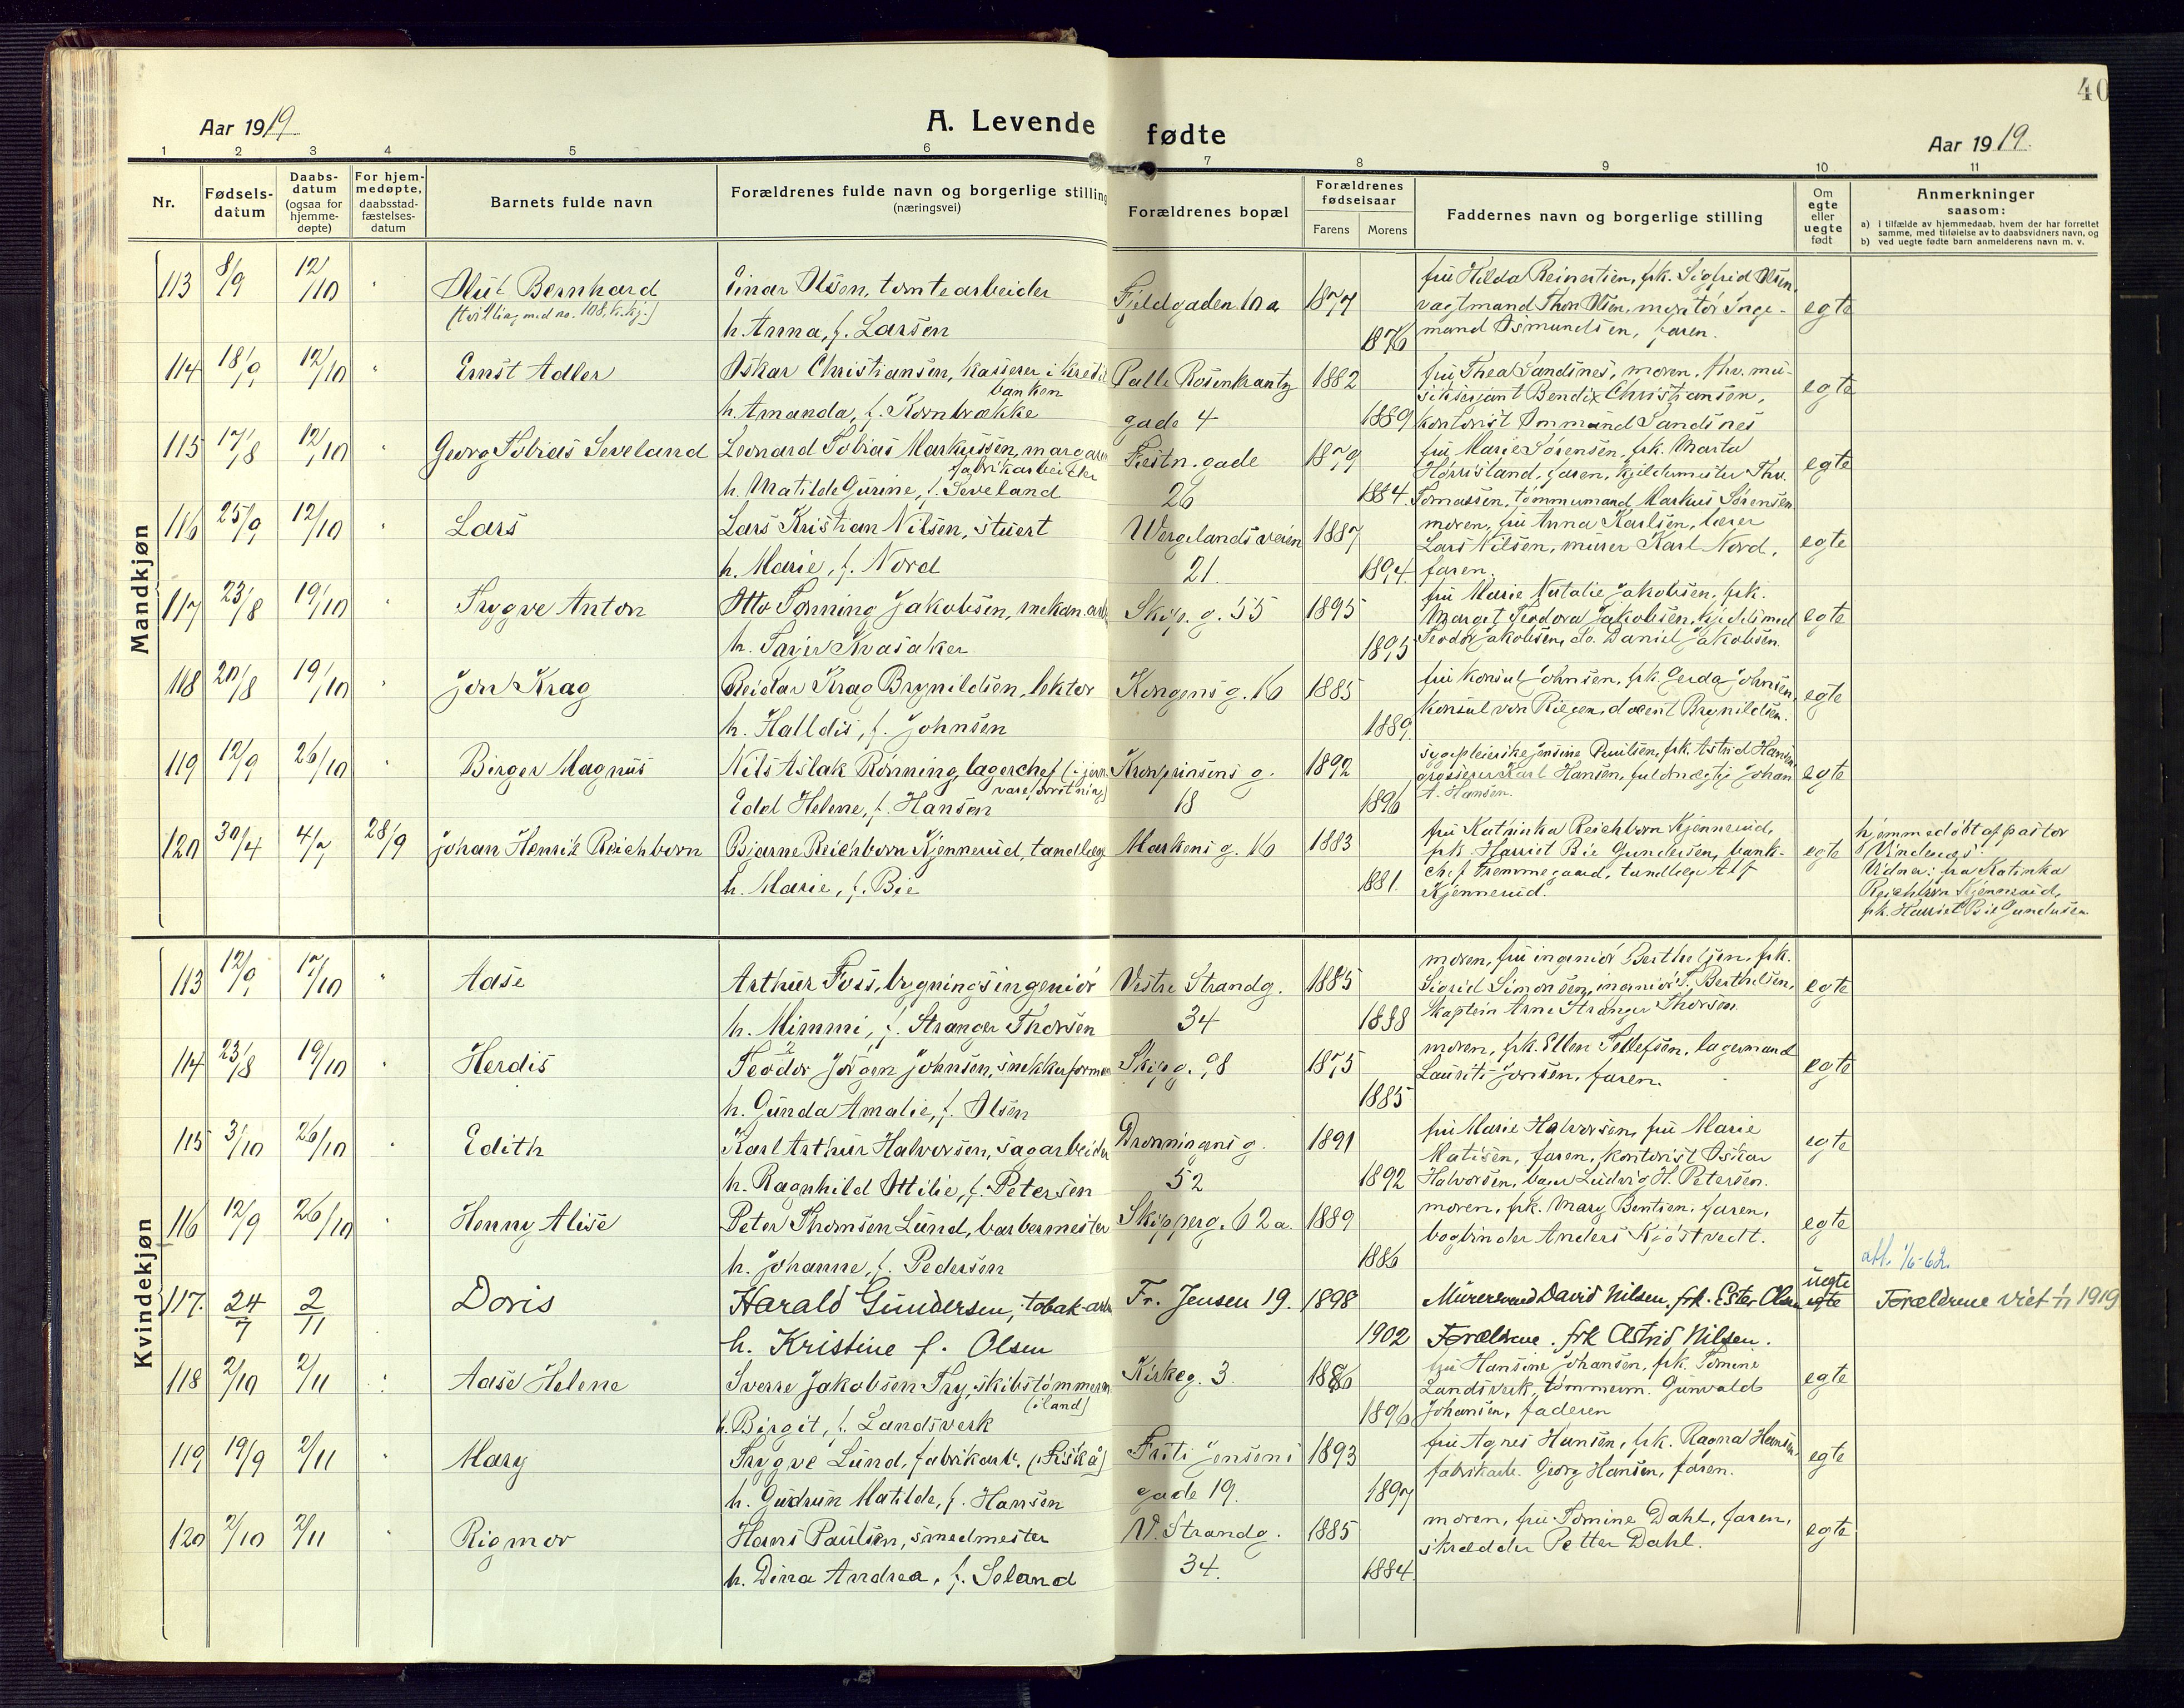 40
Aar 1919
A. Levende fødte
Aar 1919.
1 2 3 4 5 6 7 8 9 10 11
Nr.
Fødsels-
datum
Daabs-
datum
(ogsaa for
hjemme-
døpte)
For hjem-
medøpte,
daabsstad-
fæstelses-
datum
Barnets fulde navn
Forældrenes fulde navn og borgerlige stilling
(næringsvei)
Forældrenes bopæl
Forældrenes
fødselsaar
Farens Morens
Faddernes navn og borgerlige stilling
Om
egte
eller
uegte
født
Anmerkninger
saasom:
a) i tilfælde av hjemmedaab, hvem der har forrettet
samme, med tilføielse av to daabsvidners navn, og
b) ved uegte fødte barn anmelderens navn m. v.
Mandkjøn
113 8/9 12/10 " Bernhard
(tvilling med no. 108, k.kj.)
Einar Olsen, tomtearbeider
h. Anna, f. Larsen
Fjeldgaden 10a 1877
1876
fru Hilda Reinertsen, frk. Sigfrid Olsen,
vagtmand Thor Olsen, montør Inge-
mand Osmundsen, faren.
egte
114 18/9 12/10 " Ernst Adler
Oskar Christiansen, kasserer i kredit
banken
h. Amanda, f. Kornbrække
Palle Rosenkrantz
gade 4
1882
1889
fru Thea Sandsnes, moren, fhv. mu-
siksersjant Bendix Christiansen,
kontorist Ommund Sandsnes
egte
115 17/8 12/10 " Georg Tobias Seveland
Leonard Tobias Markussen, margarin
fabrikarbeider
h. Matilde Gurine, f. Seveland
Festn. gade
26
1879
1884.
fru Marie Sørensen, frk. Marta
faren, Thv.
Tomassen, tømmermand Markus Sørensen
egte
116 25/9 12/10 " Lars
Lars Kristian Nilsen, stuert
h. Marie, f. Nord
Wergelandsveien
21.
1887
1894.
moren, fru Anna Karlsen, lærer
Lars Nilsen, murer Karl Nord,
faren.
egte
117 23/8 19/10 " Trygve Anton
Otto Tønning Jakobsen, mekan. arb
h. Kvasaker
Skip. g. 55 1895
1895
fru Marie Natalie Jakobsen, frk.
Margit Teodora Jakobsen, kjedelsmed
Teodor Jakobsen, do. Daniel Jakobsen.
egte
118 20/8 19/10 " Jon Krag
Reidar Krag Brynildsen, lektor
h. Halldis, f. Johnsen
Kongens g. 16 1885
1889.
fru konsul Johnsen, frk. Gerda Johnsen,
konsul von docent Brynildsen.
egte
119 12/9 26/10 " Birger Magnus
Nils Aslak Rønning, lagerchef (i jern
vareforretning)
Edel Helene, f. Hansen
Kronprinsens g.
18
1892
1896
sygepleierske Jensine Paulsen, frk. Astrid Hansen
grosserer Karl Hansen, fuldmægtig Johan
A. Hansen.
egte
120 30/4 4/7 28/9 Johan Henrik Reichborn
Bjarne Reichborn Kjennerud, tandlæge
h. Marie, f. Bie
Markens g. 16 1883
1881.
fru Katinka Reichborn Kjennerud,
frk. Harriet Bie Gundersen, bank-
chef Fremmegaard, tandlæge Alf
Kjennerud.
egte
hjemmedøbt af pastor
Vindenæs.
Vidner: fru Katinka
Reichborn Kjennerud,
frk. Harriet Bie Gundersen
Kvindekjøn
113 12/9 17/10 " Aase
Arthur Foss, bygningsingeniør
h. Mimmi, f. Stranger Thorsen
Vestre Strandg.
34
1885
1888
moren, fru ingeniør Berthelsen, frk.
Sigrid Simonsen, ingeniør S. Berthelsen,
kaptein Arne Stranger Thorsen.
egte
114 23/8 19/10 " Herdis
Teodor Jørgen Johnsen, snekkerformann
h. Gunda Amalie, f. Olsen
Skip. g. 98 1875
1885
moren, frk. Ellen Tellefsen, lagermand
Laurits Jonsen, faren.
egte
115 3/10 26/10 " Edith
Karl Arthur Halvorsen, sagarbeider
h. Ragnhild Ottilie, f. Petersen
Dronningens g.
52
1891
1892
fru Marie Halvorsen, fru Marie
Matisen, faren, kontorist Oskar
Halvorsen, bager Ludvig H. Petersen.
egte
116 12/9 26/10 " Henny Alise
Peter Thomsen Lund, barbermester
h. Johanne, f. Pedersen
Skipperg. 62a. 1889
1886
moren, frk. Mary Bentsen, faren,
bogbinder Anders Kjøstvedt.
egte
att. 1/6-62.
117. 24/7 2/11 Doris
Harald Gundersen, tobak-arb
h. Kristine f. Olsen
Fr. Jensen 19. 1898
1902
Murersvend David Nilsen, frk. Ester Olsen
Forældrene. frk Astrid Nilsen.
uegte
egte
Forældrene viet 1/11 1919
118 2/10 2/11 " Aase Helene
Sverre Jakobsen Try, skibstømmerm.
(i land)
h. Birgit, f. Landsverk
Kirkeg. 3. 1886
1896
fru Hansine Johansen, frk. Tomine
Landsverk, tømmerm. Gunvald
Johansen, faderen
egte
119 19/9 2/11 Mary
Trygve Lund, fabrikarb. (Fiskå)
h. Gudrun Matilde, f. Hansen
Frits Jensens
gade 19.
1893
1897
fru Agnes Hansen, frk. Ragna Hansen,
fabrikarb. Georg Hansen, faren.
egte
120 2/10 2/11 " Rigmor
Hans Paulsen, smedmester
h. Dina Andrea, f. Seland
V. Strandg.
34.
1885
1884.
moren, fru Tomine Dahl, faren,
skrædder Petter Dahl.
egte